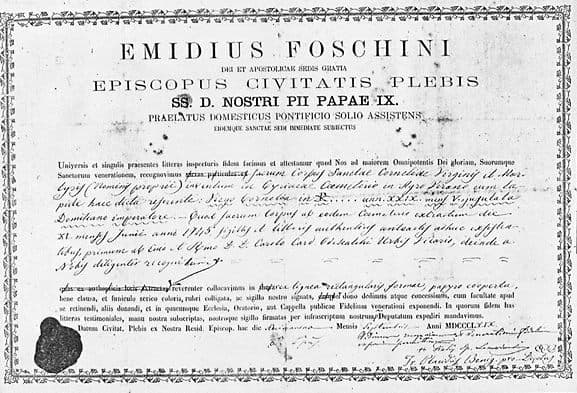 EMIDIUS FOSCHINI
DEI ET APOSTOLICAE SEDIS GRATIA
EPISCOPUS CIVITATIS PLEBIS
SS. D. NOSTRI PII PAPAE IX.
PRAELATUS DOMESTICUS PONTIFICIO SOLIO ASSISTENS
EIDEMQUE SANCTAE SEDI IMMEDIATE SUBIECTUS
Universis et singulis praesentes litteras inspecturis fidem facimus et attestamur quod Nos ad maiorem Omnipotentis Dei gloriam, Suorumque
Sanctorum venerationem, recognovimus sacrum Corpus Sanctae Corneliae Virginis et Mar-
tyris (Nominis proprii) inventum in Cyriacae Coemeterio in Agro Verano cum la-
pide haec dicta referente
Domitiano imperatore. Quod sacrum Corpus ab eodem Coemeterio extractum die
XI mensis Junii anno 1745 sigillis et litteris authenticis
primum ab Emo et Rmo D. D. Card Urbis Vicario, deinde a
Nobis diligenter recognitum
reverenter collocavimus in lignea rectangularis formae, papyro cooperta,
bene clausa, et funiculo serico coloris rubri colligata, ac sigillo nostro signata, dono dedimus atque concessimus, cum facultate apud
se retinendi, aliis donandi, et in quacumque Ecclesia, Oratorio, aut Cappella publicae Fidelium venerationi exponendi. In quorum fidem has
litteras testimoniales, manu nostra subscriptas, nostroque sigillo firmatas per infrascriptum nostrum Deputatum expediri mandavimus.
Datum Civitat. Plebis ex Nostra Resid. Episcop. hac die Mensis Septembris Anni MDCCCLXIX